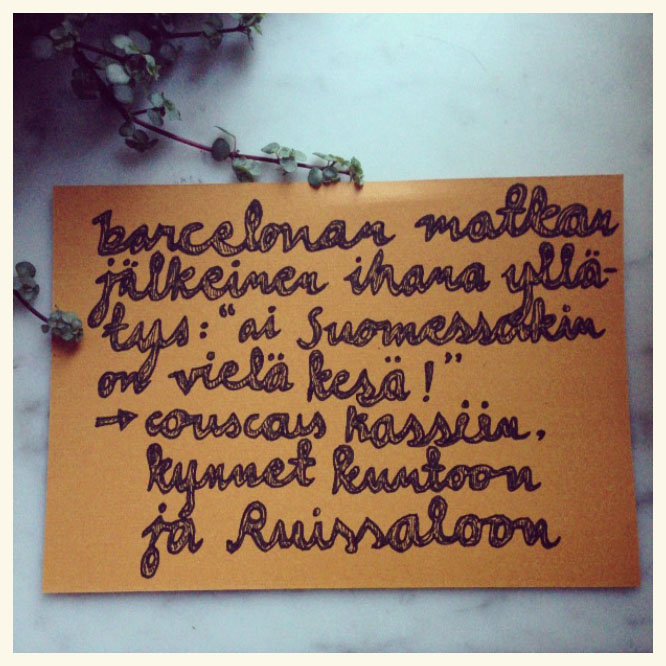 barcelonan matkan
jälkeinen ihana yllä-
tys: "ai Suomessakin
on vielä kesä!"
→ couscous kassiin,
kynnet kuntoon
ja Ruissaloon